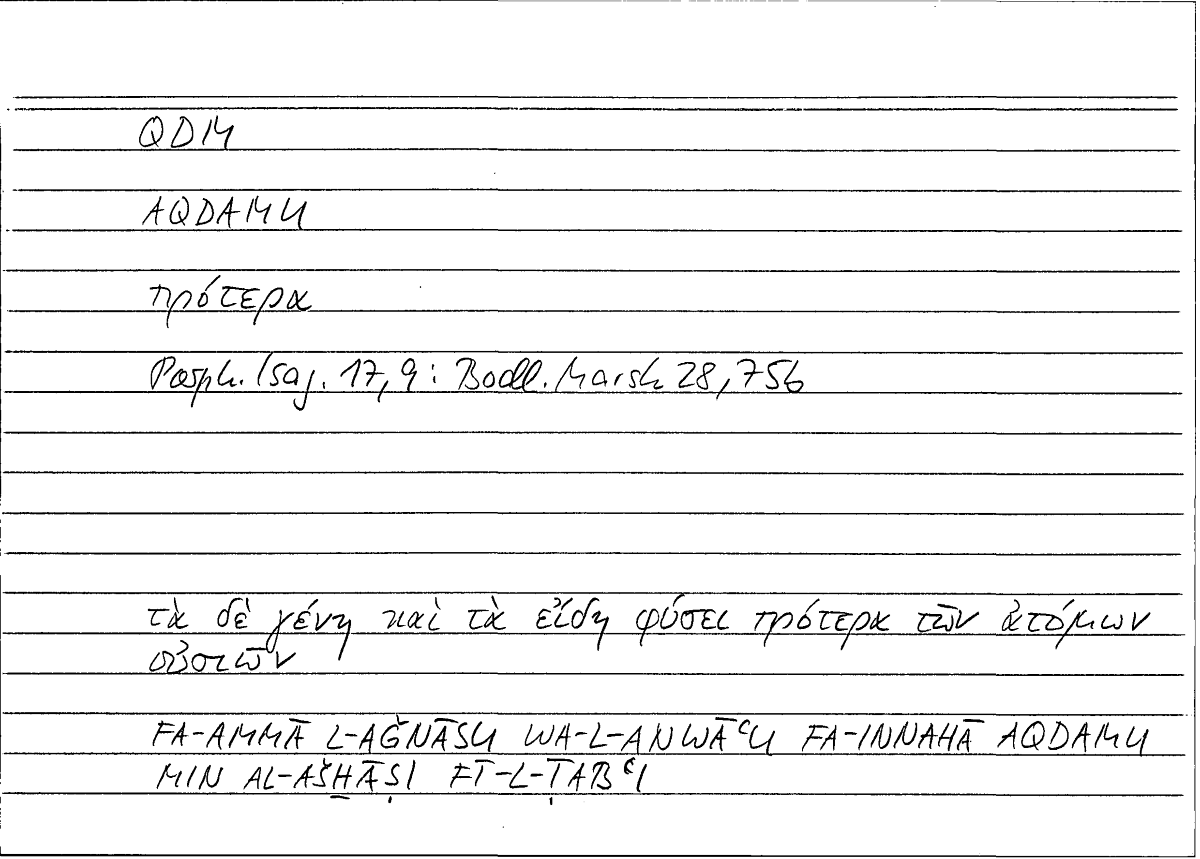 QDM
AQDAMU
πρότερα
Porph. Isag. 17,9: Bodl. Marsh 28,75b
τὰ δὲ γένη καὶ τὰ εἴδη φύσει πρότερα τῶν ἀτόμων
οὐσιῶν
FA-AMMĀ L-AǦNĀSU WA-L-ANWĀʿU FA-INNAHĀ AQDAMU
MIN AL-AŠḪĀṢI FĪ-L-ṬABʿI